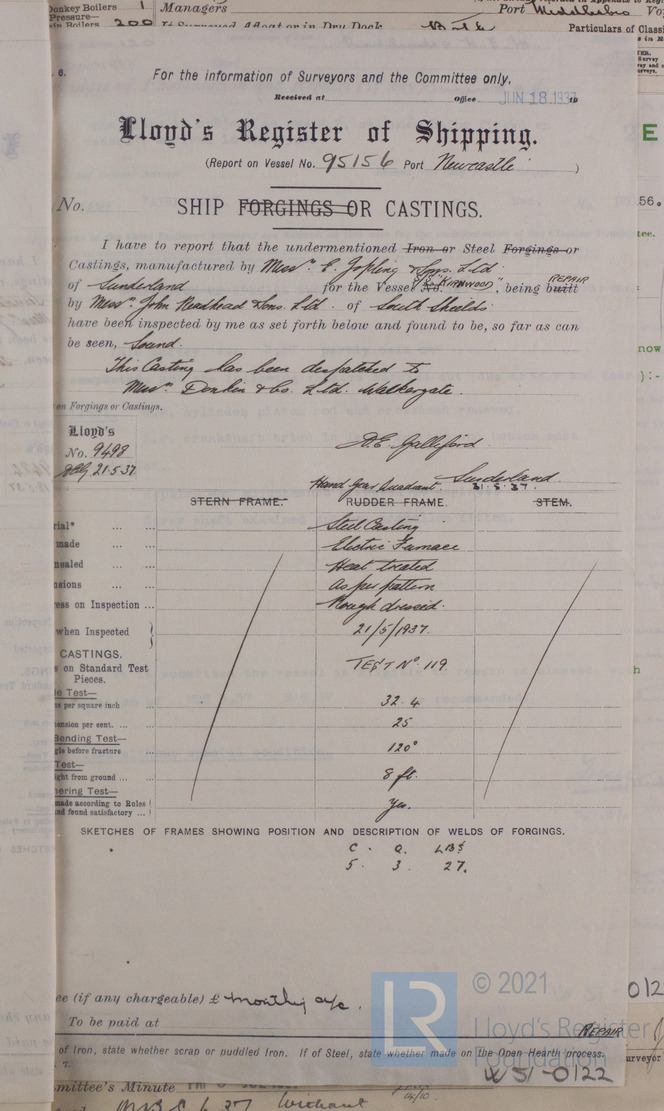 Donkey Boilers 1 Managers Port Middlesbro
Pressure—
in Boilers 200 If Surveyed Afloat or in Dry Dock Particulars of Classi
6.
For the information of Surveyors and the Committee only,
Received at Office JUN 18.1937 19
Lloyd's Register of Shipping.
(Report on Vessel No. 95156 Port Newcastle )
No.
SHIP FORGINGS OR CASTINGS.
I have to report that the undermentioned Iron or Steel Forgings or
Castings, manufactured by Messrs. E. Jopling & Sons. Ltd
of Sunderland for the Vessel No. S/S "KIRNWOOD", being built REPAIR
by Messrs. John Readhead & Sons. Ltd. of South Shields
have been inspected by me as set forth below and found to be, so far as can
be seen, Sound.
This Casting has been despatched to
Messrs Donkin & Co. Ltd. Walkergate.
on Forgings or Castings.
Lloyd's
No. 9498
21.5.37
A.E. Galliford.
Sunderland
Hand Gear Quadrant. 21.5.37.
STERN FRAME. RUDDER FRAME. STEM.
rial* ... ... Steel Casting
made ... ... Electric Furnace
nealed ... Heat treated
nsions ... ... As per pattern
ress on Inspection ... Rough dressed.
when Inspected 21/5/1937.
CASTINGS.
s on Standard Test
Pieces. TEST No. 119
le Test—
ns per square inch 32.4
tension per cent. ... 25
Bending Test—
gle before fracture 120°
Test—
ight from ground ... ... 8 ft.
mering Test—
made according to Rules
nd found satisfactory ... Yes.
SKETCHES OF FRAMES SHOWING POSITION AND DESCRIPTION OF WELDS OF FORGINGS.
C. Q. LBS
5. 3. 27.
ee (if any chargeable) £ monthly a/c.
To be paid at
REPAIR
of Iron, state whether scrap or puddled Iron. If of Steel, state whether made on the Open Hearth process.
LR
© 2021
Lloyd's Register
Foundation
WS1-0122
mmittee's Minute
without
E
56.
tee.
now
):-
h
012
urveyor